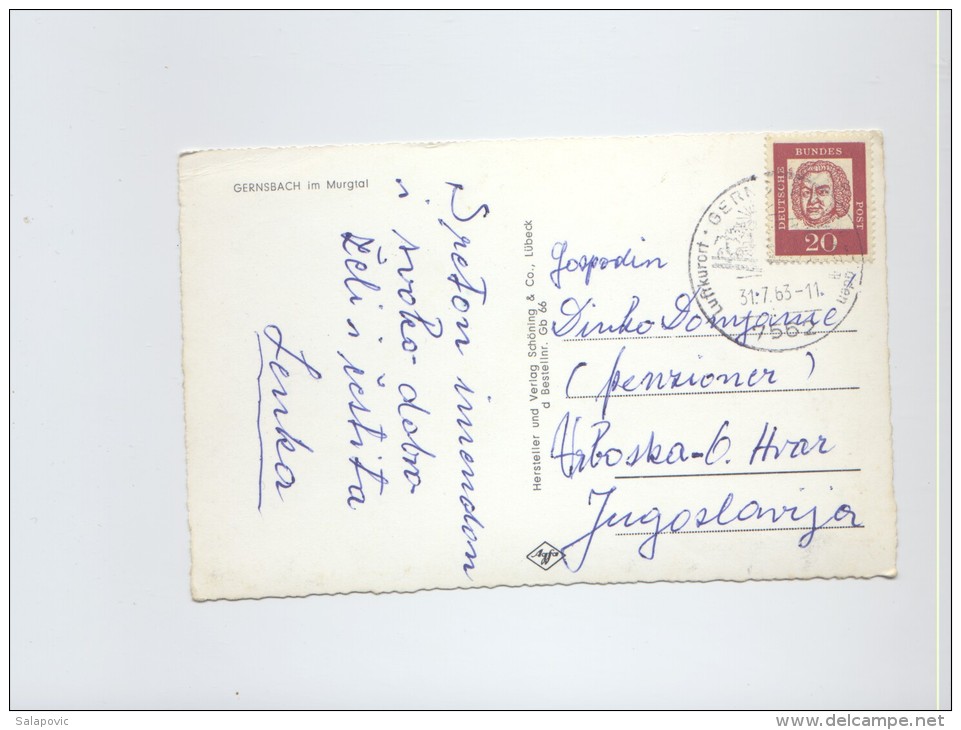 GERNSBACH im Murgtal
Sretan imendan
i svako dobro
želi i čestita
Lenka
Hersteller und Verlag Schöning & Co., Lübeck
d Bestellnr. Gb 66
Agfa
DEUTSCHE
BUNDES
POST
20
Luftkurort · GERN
31.7.63-11.
7562
Gospodin
Dinko
(penzioner)
Vrboska-O. Hvar
Jugoslavija
Salapovic
www.delcampe.net